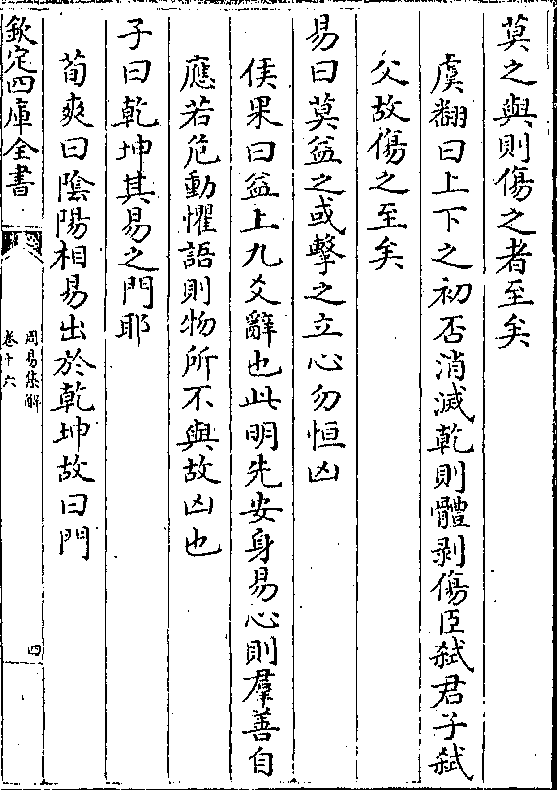 莫之與則傷之者至矣
虞翻曰上下之初否消滅乾則體剥傷臣弑君子弑
父故傷之至矣
易曰莫益之或擊之立心勿恒凶
侯果曰益上九爻辭也此明先安身易心則羣善自
應若危動懼語則物所不與故凶也
子曰乾坤其易之門耶
荀爽曰陰陽相易出於乾坤故曰門
欽定四庫全書
周易集解
卷十六
四